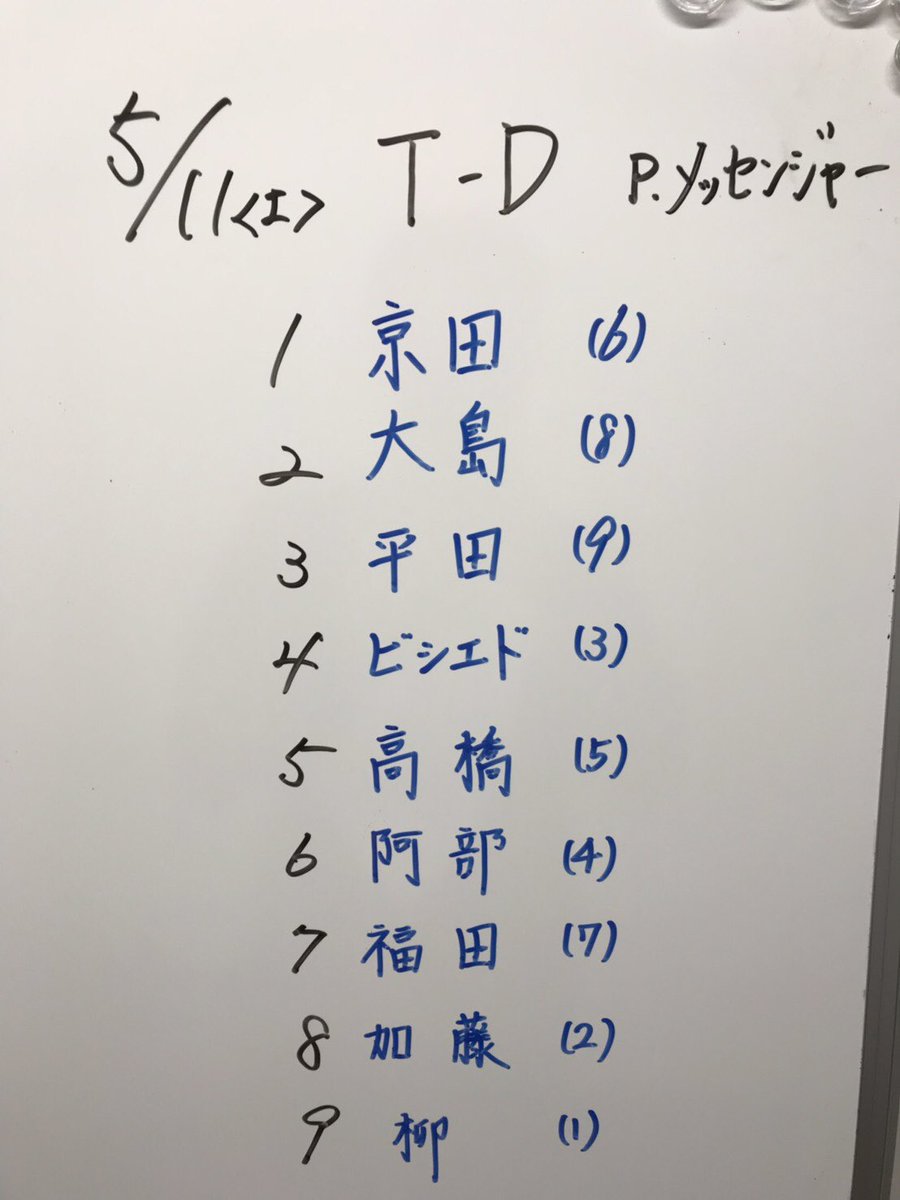 5/11<土> T-D P.メッセンジャー
1 京田 (6)
2 大島 (8)
3 平田 (9)
4 ビシエド (3)
5 高橋 (5)
6 阿部 (4)
7 福田 (7)
8 加藤 (2)
9 柳 (1)